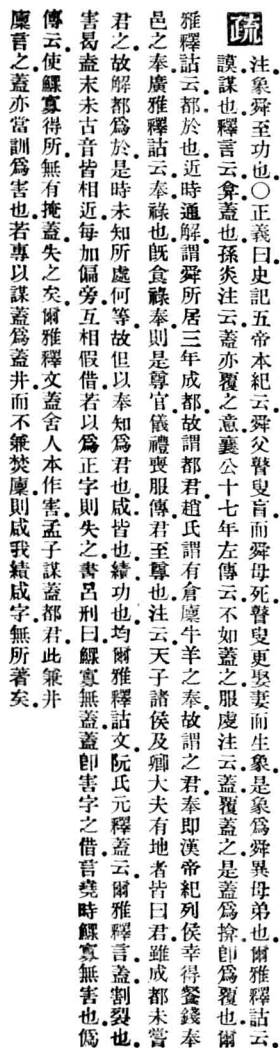 疏注象舜至功也○正義曰史記五帝本紀云舜父瞽叟盲而舜母死瞽叟更娶妻而生象是象爲舜異母弟也爾雅釋詁云
謨謀也釋言云弇蓋也孫炎注云蓋亦覆之意襄公十七年左傳云不如蓋之服虔注云蓋覆蓋之是蓋爲揜卽爲覆也爾
雅釋詁云都於也近時通解謂舜所居三年成都故謂都君趙氏謂有倉廩牛羊之奉故謂之君奉卽漢帝紀列侯幸得餐錢奉
邑之奉廣雅釋詁云奉祿也旣食祿奉則是尊官儀禮喪服傳君至尊也注云天子諸侯及卿大夫有地者皆曰君雖成都未嘗
君之故解都爲於是時未知所處何等故但以奉知爲君也咸皆也績功也均爾雅釋詁文阮氏元釋蓋云爾雅釋言蓋割裂也
害曷盍末未古音皆相近每加偏旁互相假借若以爲正字則失之書呂刑曰鰥寡無蓋蓋卽害字之借言堯時鰥寡無害也僞
傳云使鰥寡得所無有掩蓋失之矣爾雅釋文蓋舍人本作害孟子謀蓋都君此兼井
廩言之蓋亦當訓爲害也若專以謀蓋爲蓋井而不兼焚廩則咸我績咸字無所著矣